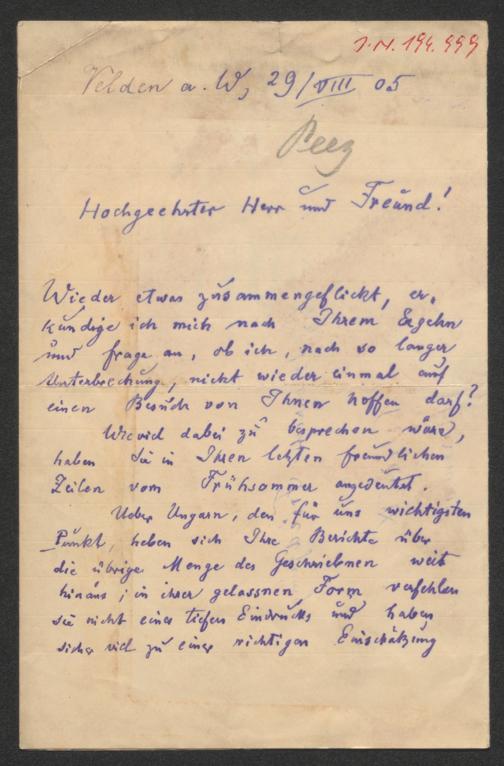 J.N. 194.999
Velden a. W, 29/VIII 05
Peez
Hochgeehrter Herr und Freund!
Wieder etwas zusammengeflickt, er-
kundige ich mich nach Ihrem Ergehn
und frage an, ob ich, nach so langer
Unterbrechung, nicht wieder einmal auf
einen Besuch von Ihnen hoffen darf?
Wieviel dabei zu besprechen wäre,
haben Sie in Ihren letzten freundlichen
Zeilen vom Frühsommer angedeutet.
Ueber Ungarn, den für uns wichtigsten
Punkt, heben sich Ihre Berichte über
die übrige Menge des Geschriebnen weit
hinaus; in ihrer gelassnen Form verfehlen
sie nicht eines tiefen Eindrucks und haben
sicher viel zu einer richtigen Einschätzung